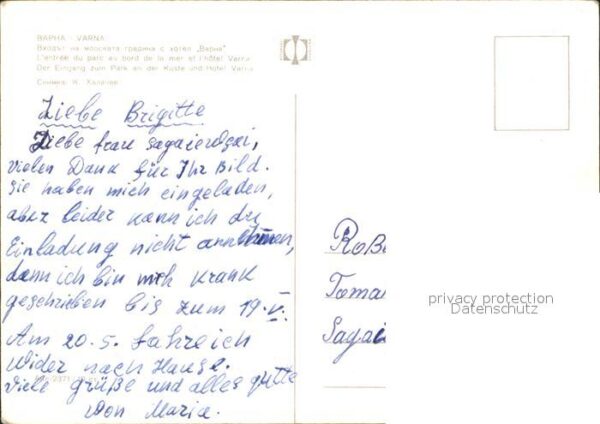 ВАРНА · VARNA
Входът на морската градина с хотел „Варна"
L'entrée du parc au bord de la mer et l'hôtel Varna
Der Eingang zum Park an der Küste und Hotel Varna
Снимка: К.
Liebe Brigitte
Liebe frau
vielen Dank für Ihr Bild.
Sie haben mich eingeladen,
aber leider kann ich die
Einladung nicht annehmen,
dann ich bin mich krank
geschrieben bis zum 19.V.
Am 20.5. fahre ich
Wider nach Hause.
Viele grüße und alles gutte
Von Maria.
privacy protection
Datenschutz